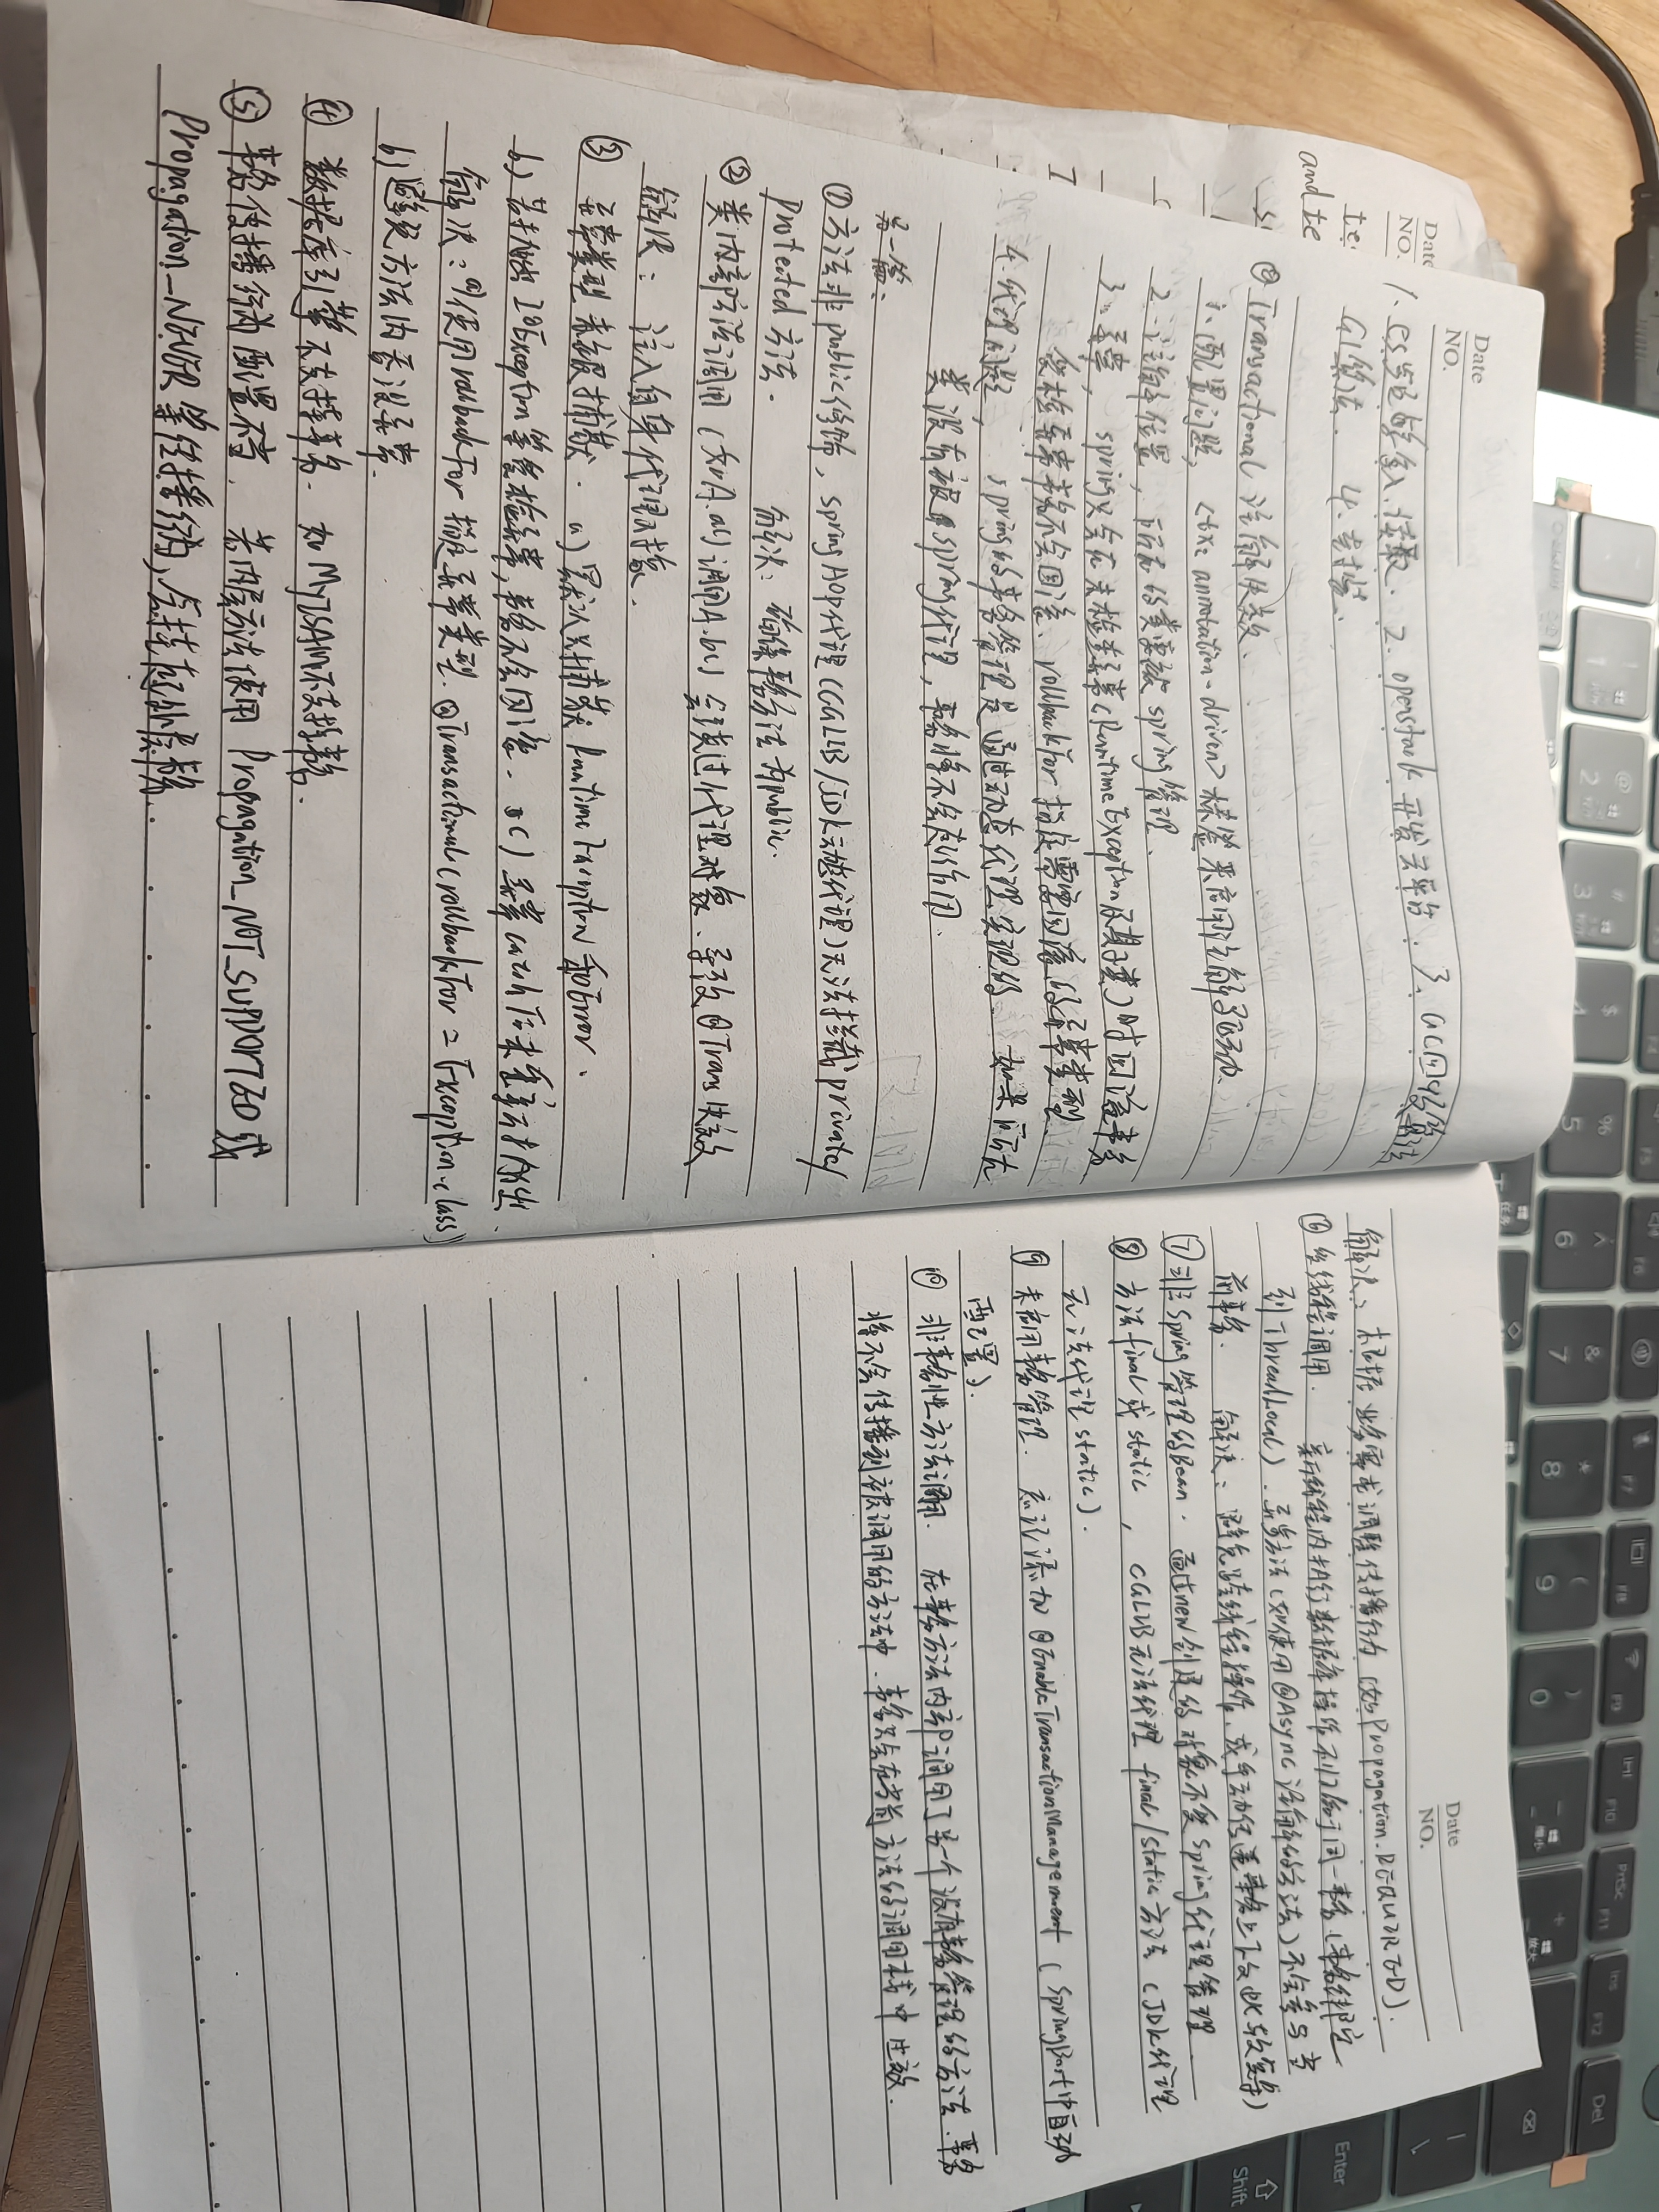 Date
NO.
1. es与已解多入、读数. 2. openstack 开发云平台. 3. GC回收的算法
G1算法. 4.
@Transactional 注解失效.
1. 配置问题, <tx: annotation-driven> 标签来启用注解驱动.
2. 注解位置, 所在的类要被 spring管理.
3. 异常, spring只会在未检查异常(RuntimeException及其子类)时回滚事务
受检异常事务不会回滚. rollbackFor 指定需要回滚的异常类型.
4. 代理问题, spring的事务管理是通过动态代理实现的. 如果所在
类没有被spring代理, 事务将不会起作用.
另一篇:
① 方法非public修饰, spring AOP代理(CGLIB/JDK动态代理)无法拦截private/
protected 方法. 解决: 确保事务方法为public.
② 类内部方法调用 (如A.a()调用A.b()) 会绕过代理对象、导致@Trans失效
解决: 注入自身代理对象.
③ 异常类型未被捕获. a) 默认只捕获 RuntimeException 和Error.
b) 若抛出 IOException 等受检异常, 事务不会回滚. c) 异常catch后未重新抛出.
解决: a)使用rollbackFor 指定异常类型. @Transactional(rollbackFor = Exception.class)
b)避免方法内吞没异常.
④ 数据库引擎不支持事务. 如MyISAM不支持事务.
⑤ 事务传播行为配置不当. 若内层方法使用 Propagation_NOT_SUPPORTED或
Propagation_NEVER 等传播行为, 会挂起外层事务.
Date
NO.
解决: 根据业务需求调整传播行为 (如Propagation.REQUIRED).
⑥ 多线程调用. 新线程内执行数据库操作不归属于同一事务(事务绑定
到ThreadLocal). 异步方法(如使用@Async注解的方法)不会参与当
前事务. 解决: 避免跨线程操作, 或手动传递事务上下文(比较复杂)
⑦ 非Spring管理的Bean. 通过new创建的对象不受Spring代理管理
⑧ 方法final或static, CGLIB无法代理 final/static方法 (JDK代理
无法代理static).
⑨ 未启用事务管理. 忘记添加@EnableTransactionManagement (SpringBoot中自动
配置).
⑩ 非事务性方法调用. 在事务方法内部调用了另一个没有事务管理的方法、事务
将不会传播到被调用的方法中. 事务只会在当前方法的调用栈中生效.